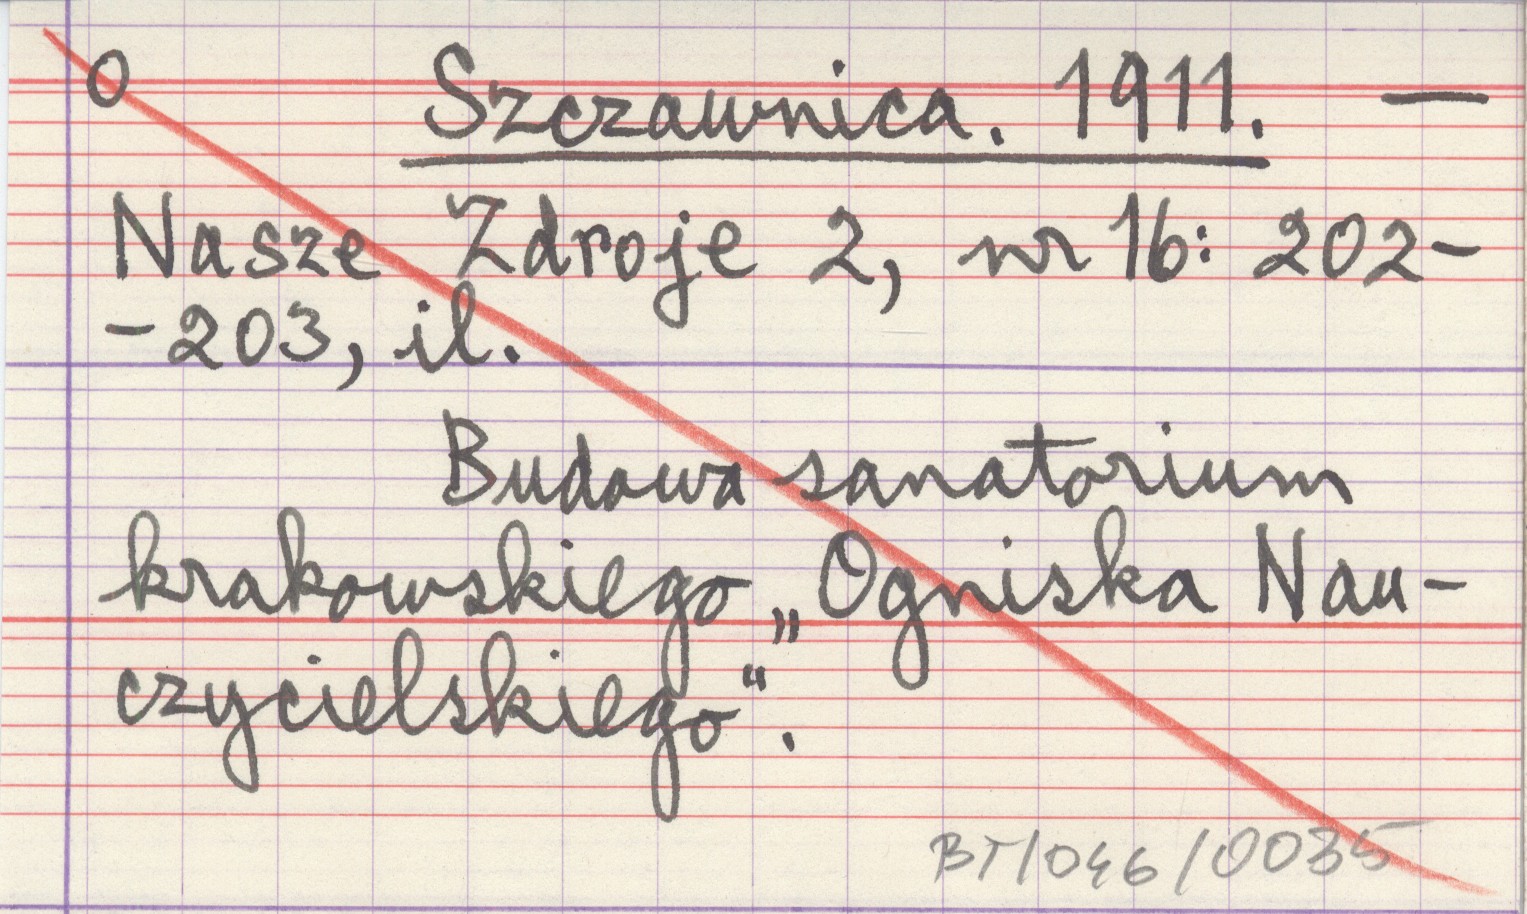 O Szczawnica. 1911. —
Nasze Zdroje 2, nr 16: 202-
-203, il.
Budowa sanatorium
krakowskiego „Ogniska Nau-
czycielskiego“.
BT/046/0035